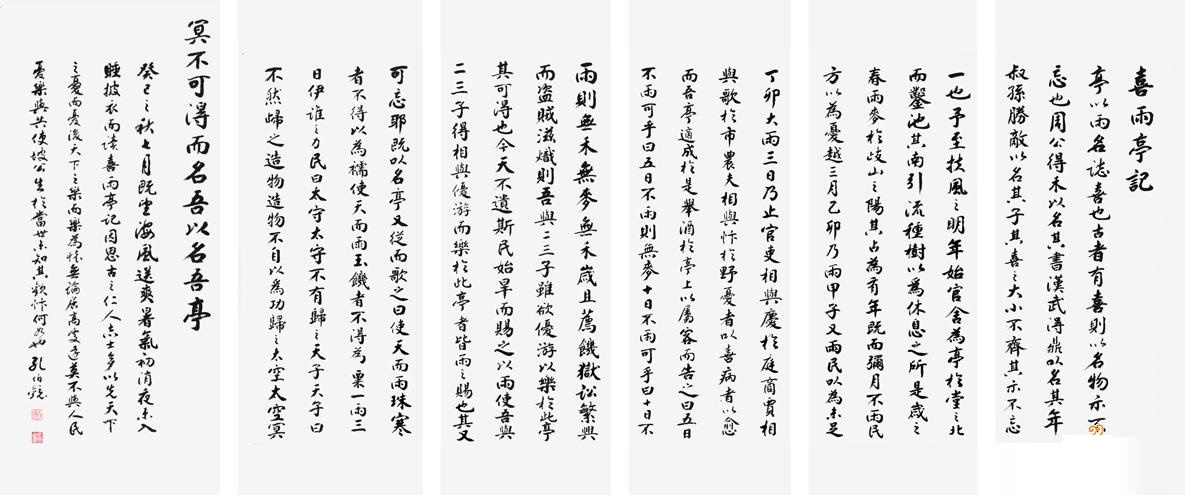 喜雨亭記
亭以雨名誌喜也古者有喜則以名物示不
忘也周公得禾以名其書漢武得鼎以名其年
叔孫勝敵以名其子其喜之大小不齊其示不忘
一也予至扶風之明年始官舍為亭於堂之北
而鑿池其南引流種樹以為休息之所是歲之
春雨麥於歧山之陽其占為有年既而彌月不雨民
方以為憂越三月乙卯乃雨甲子又雨民以為未足
丁卯大雨三日乃止官吏相與慶於庭商賈相
與歌於市農夫相與忭於野憂者以喜病者以愈
而吾亭適成於是舉酒於亭上以屬客而告之曰五日
不雨可乎曰五日不雨則無麥十日不雨可乎曰十日不
雨則無禾無麥無禾歲且薦饑獄訟繁興
而盜賊滋熾則吾與二三子雖欲優游以樂於此亭
其可得也今天不遺斯民始旱而賜之以雨使吾與
二三子得相與優游而樂於此亭者皆雨之賜也其又
可忘耶既以名亭又從而歌之曰使天而雨珠寒
者不得以為襦使天而雨玉饑者不得為粟一雨三
日伊誰之力民曰太守太守不有歸之天子天子曰
不然歸之造物造物不自以為功歸之太空太空冥
冥不可得而名吾以名吾亭
癸巳之秋七月既望海風送爽暑氣初消夜未入
睡披衣而讀喜雨亭記因思古之仁人志士多以先天下
之憂而憂後天下之樂而樂為懷無論居高處遠莫不與人民
憂樂與共使坡公生於當世未知其歡忭何如也 孔伯